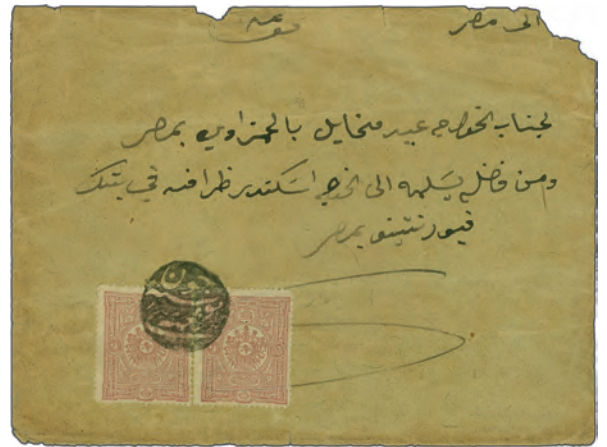 الى مصر
لجناب الخواجه عبيد مخايل بالحمزاوي بمصر
ومن فضله يسلمه الى الخواجه اسكندر ظرافه في بنك
فيورنتينو بمصر